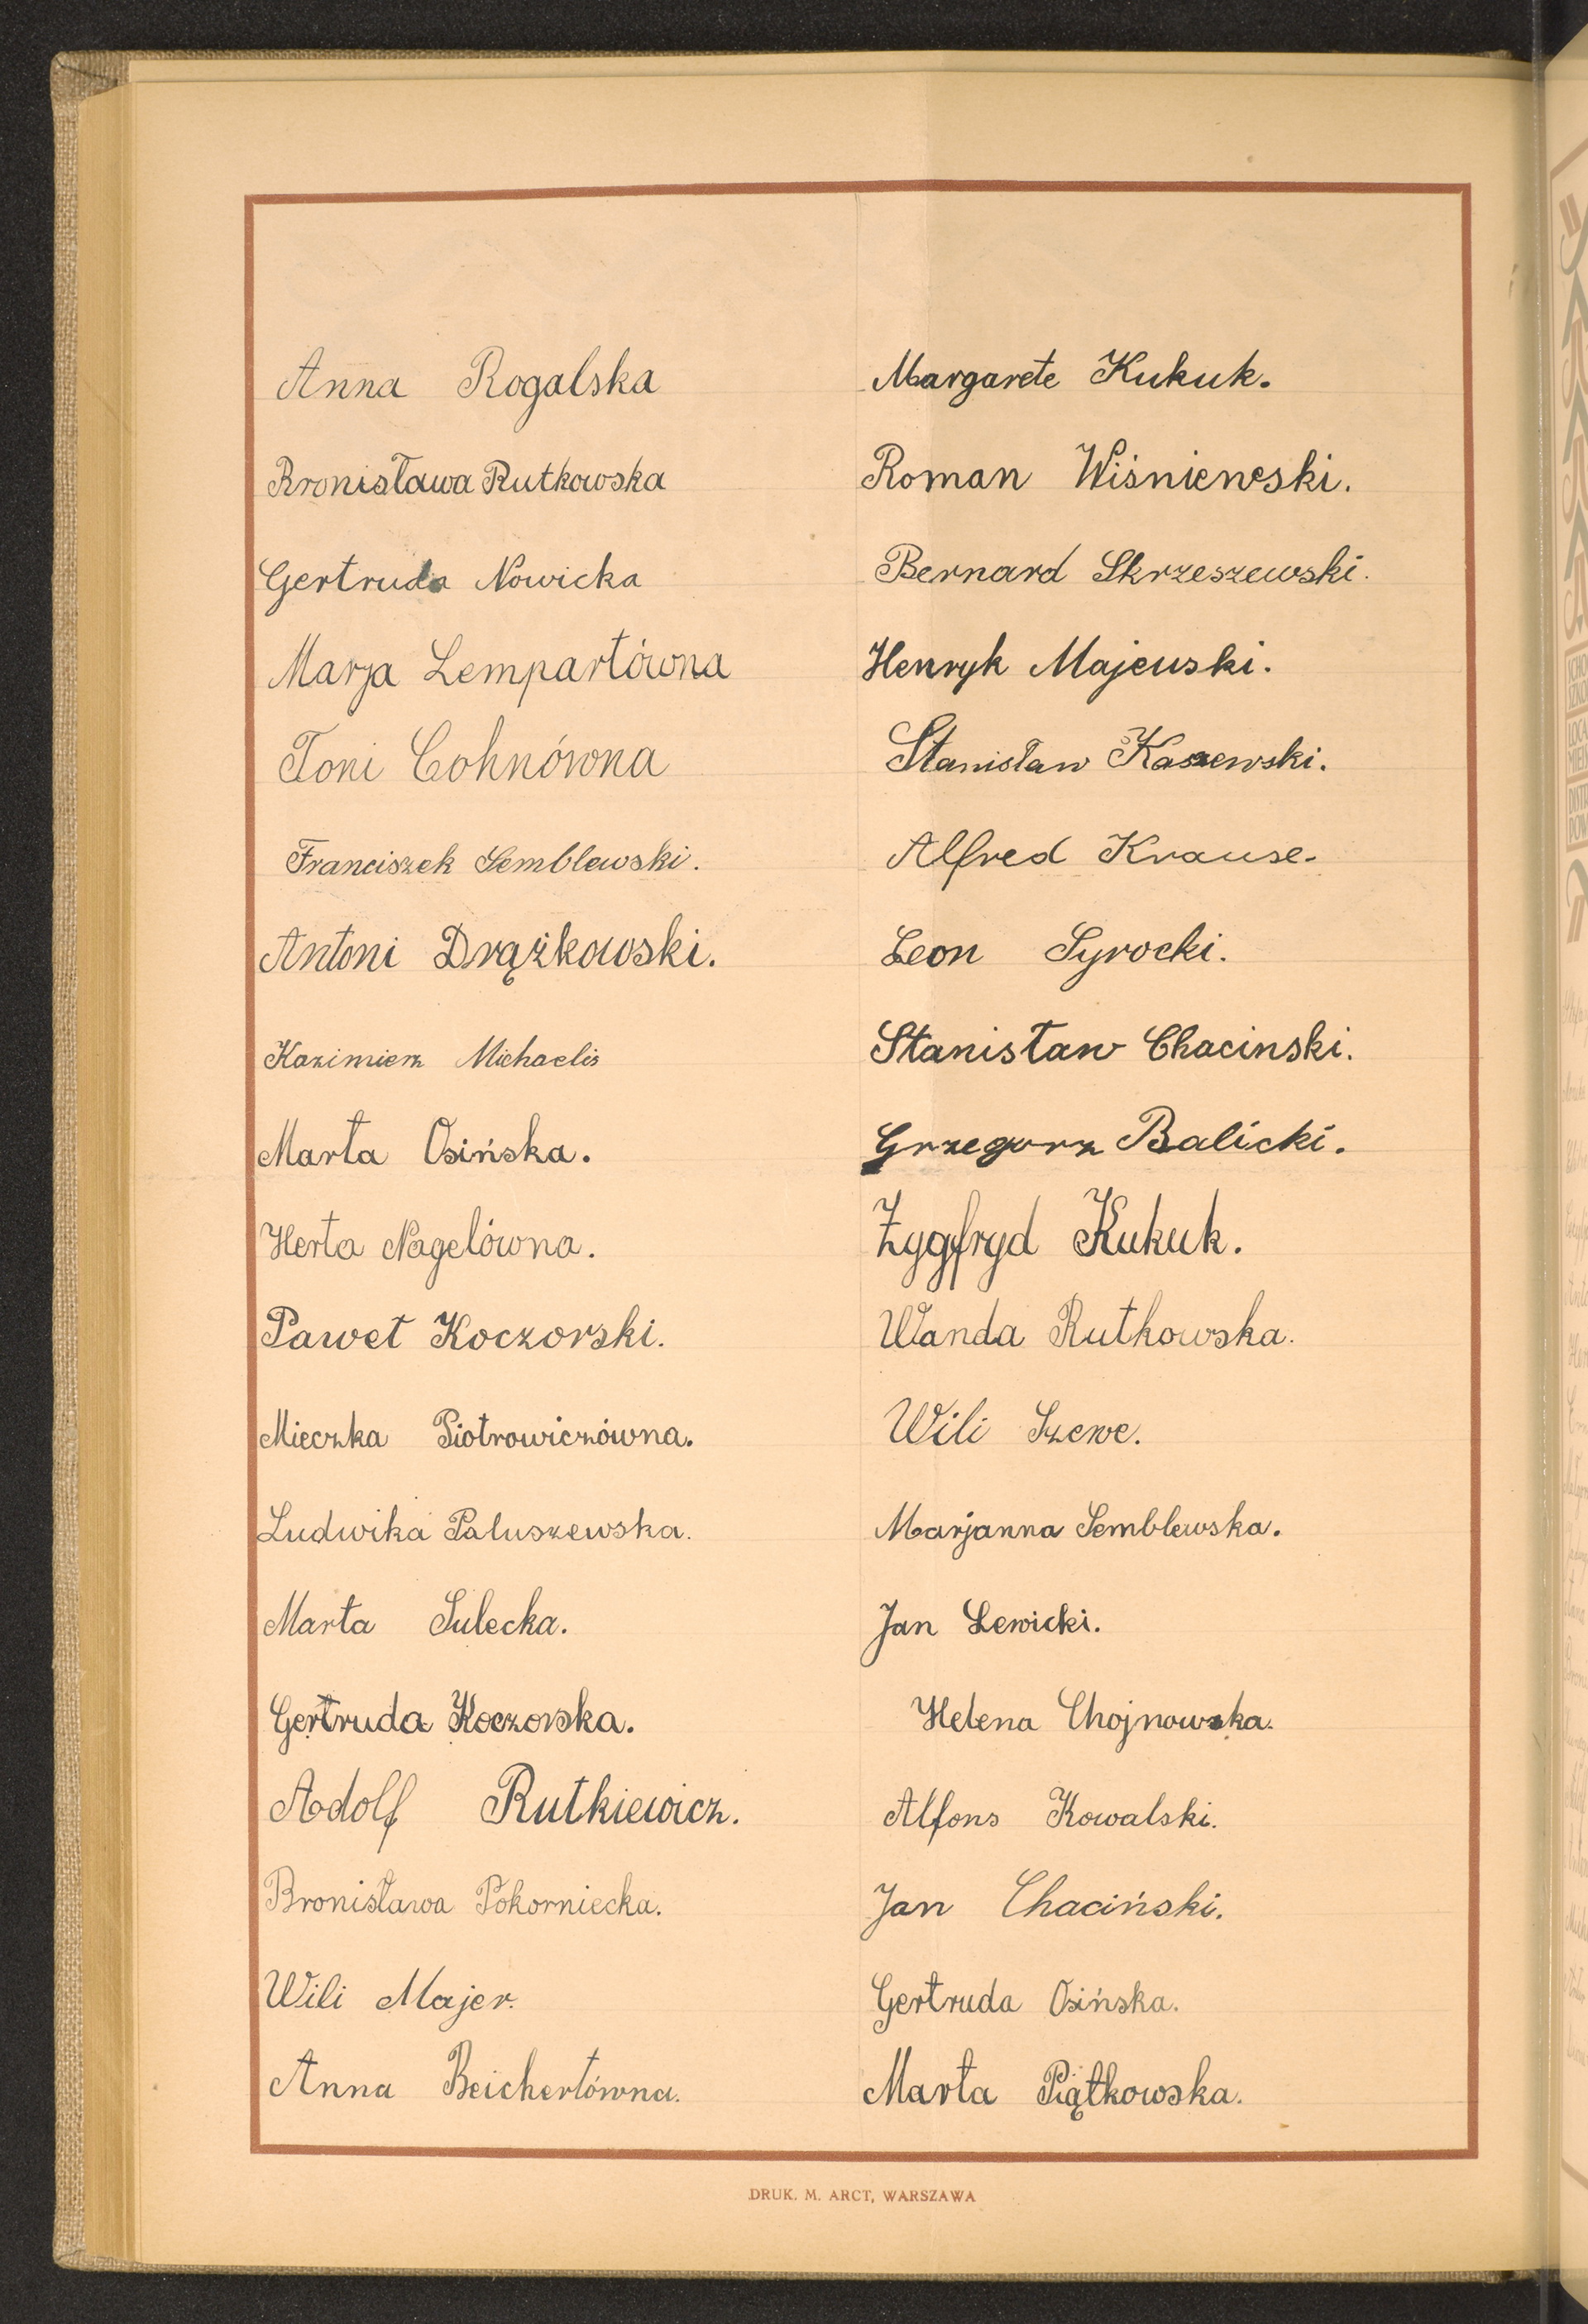 Anna Rogalska
Bronisława Rutkowska
Gertruda Nowicka
Marja Lempartówna
Toni Cohnówna
Franciszek Semblewski.
Antoni Drążkowski.
Kazimierz Michaelis
Marta Osińska.
Herta Nagelówna.
Paweł Koczorski.
Mieczka Piotrowiczówna.
Ludwika Paluszewska.
Marta Sulecka.
Gertruda Koczorska.
Adolf Rutkiewicz.
Bronisława Pokorniecka.
Wili Majer.
Anna Beichertówna.
Margarete Kukuk.
Roman Wiśniewski.
Bernard Skrzeszewski.
Henryk Majewski.
Stanisław Kaszewski.
Alfred Krause.
Leon Syrocki.
Stanisław Chacinski.
Grzegorz Balicki.
Zygfryd Kukuk.
Wanda Rutkowska.
Wili Szewe.
Marjanna Semblewska.
Jan Lewicki.
Helena Chojnowska.
Alfons Kowalski.
Jan Chaciński.
Gertruda Osińska.
Marta Piątkowska.
DRUK. M. ARCT, WARSZAWA